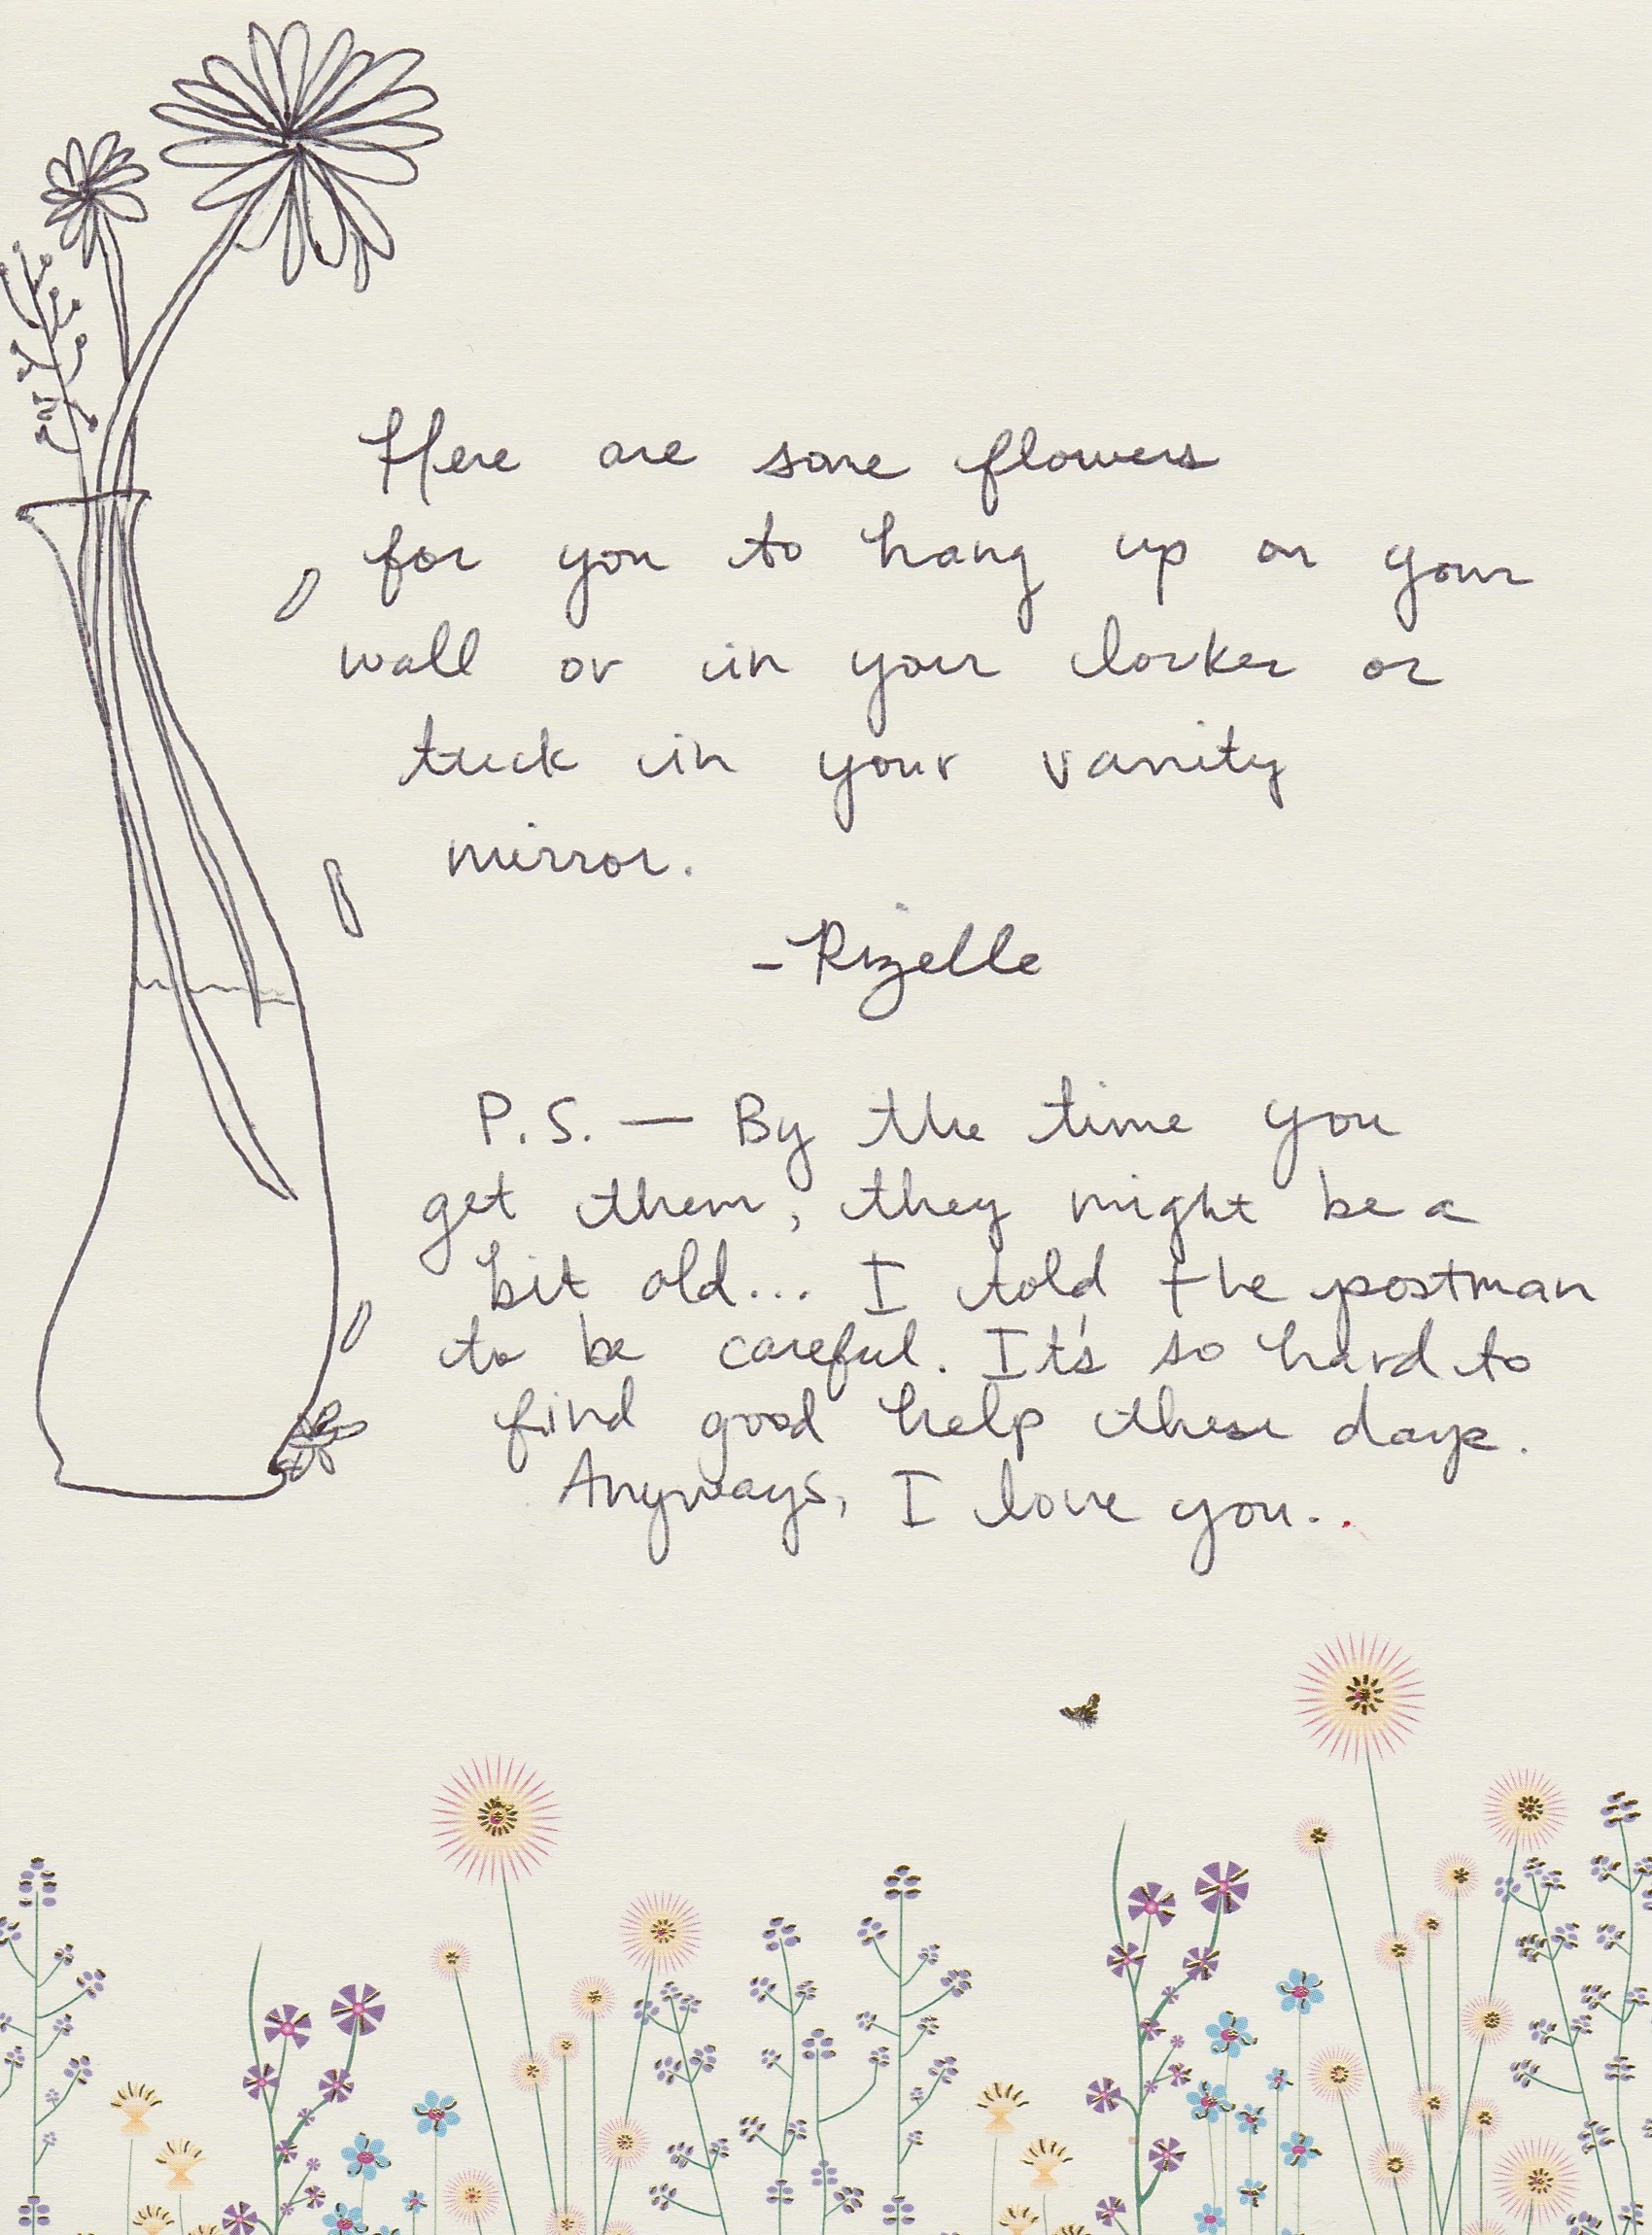 Here are some flowers
for you to hang up on your
wall or in your locker or
tuck in your vanity
mirror.
-Rizelle
P.S. — By the time you
get them, they might be a
bit old... I told the postman
to be careful. It's so hard to
find good help these days.
Anyways, I love you..